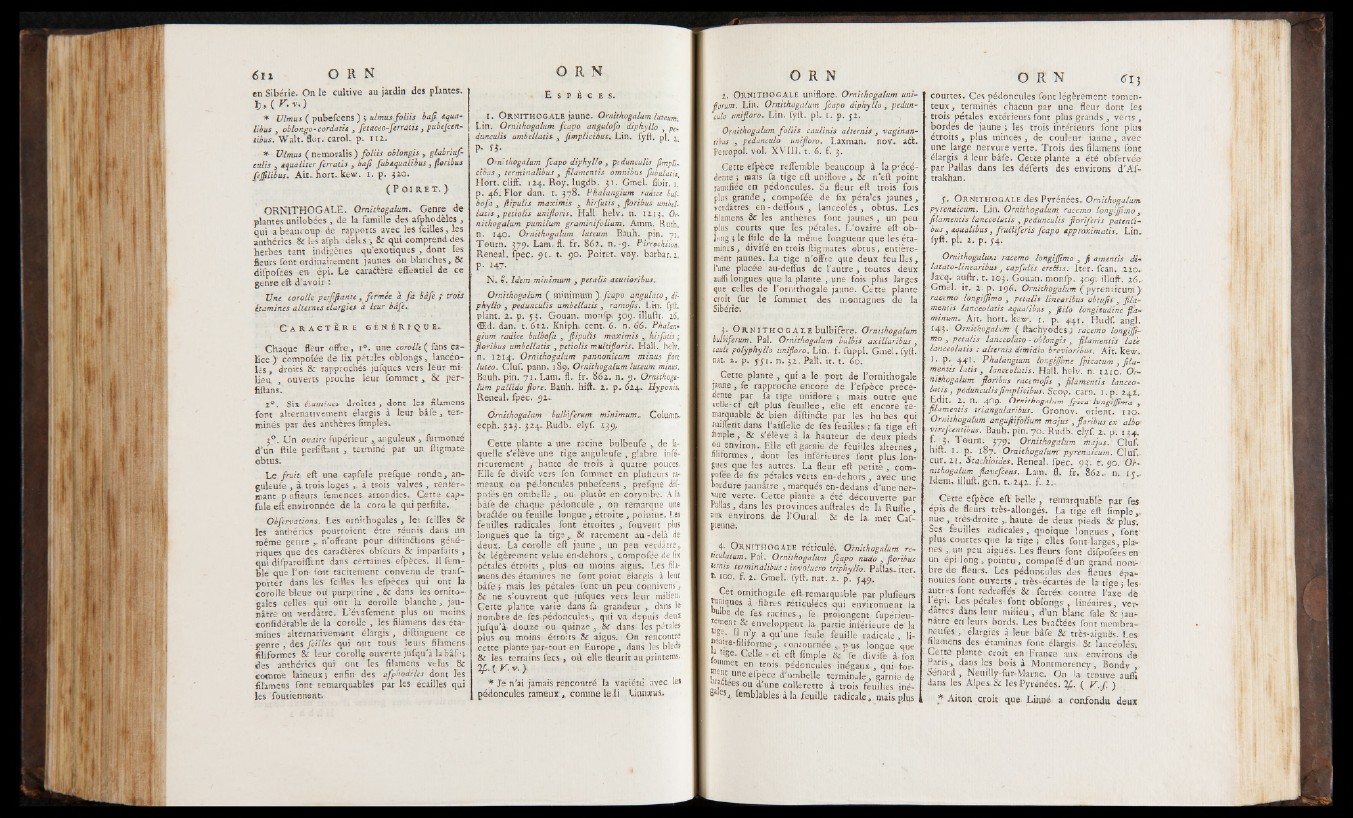 612 O R N
en Sibérie. On le cultive au jardin des plantes.
♄. ( V. v. )
* Ulmus ( pubescens ) ; ulmus foliis basi æqua-
libus , oblongo-cordatis , setaceo-serratis , pubescen-
tibus. Walt. flor. carol. p. 112.
* Ulmus ( nemoralis ) foliis oblongis , glabrius-
culis , æqualiter serratis , basi subæqualibus , floribus
sessilibus. Ait. hort. kew. 1. p. 320.
( POIRET. )
ORNITHOGALE. Ornithogalum. Genre de
plantes unilobées , de la famille des asphodèles ,
qui a beaucoup de rapports avec les scilles , les
anthérics & les asphodèles ; & qui comprend des
herbes tant indigènes qu'exotiques , dont les
fleurs sont ordinairement jaunes ou blanches, &
disposées en épi. Le caractère essentiel de ce
genre est d'avoir :
Une corolle persistante , fermée à sa base ; trois
étamines alternes élargies à leur base.
CARACTÈRE GÉNÉRIQUE.
Chaque fleur offre, 1°. une corolle ( sans ca-
lice ) composée de six pétales oblongs, lancéo-
lés , droits & rapprochés jusques vers leur mi-
lieu , ouverts proche leur sommet , & per-
sistans.
2°. Six étamines droites , dont les filamens
sont alternativement élargis à leur base , ter-
minés par des anthères simples.
3°. Un ovaire supérieur , anguleux , surmonté
d'un stile persistant , terminé par un stigmate
obtus.
Le fruit est une capsule presque ronde, an-
guleuse , à trois loges , à trois valves , renfer-
mant plusieurs semences arrondies. Cette cap-
sule est environnée de la corolle qui persiste.
Observations. Les ornithogales , les scilles &
les anthérics pourroient être réunis dans un
même genre , n'offrant pour distinctions géné-
riques que des caractères obscurs & imparfaits ,
qui disparoissent dans certaines espèces. Il sem-
ble que l'on soit tacitement convenu de trans-
porter dans les scilles les espèces qui ont la
corolle bleue ou purpurine , & dans les ornitho-
gales celles qui ont la corolle blanche , jau-
nâtre ou verdâtre. L'évasement plus ou moins
considérable de la corolle , les filamens des éta-
mines alternativement élargis , distinguent ce
genre , des scilles qui ont tous leurs filamens
filiformes & leur corolle ouverte jusqu'à la base ;
des anthérics qui ont les filamens velus &
comme laineux ; enfin des asphodèles dont les
filamens sont remarquables par les écailles qui
les soutiennent.
O R N
ESPÈCES.
1. ORNITHOGALE jaune. Ornithogalum luteum.
Lin. Ornithogalum scapo anguloso diphyllo , pe-
dunculis umbellatis , simplicibus. Lin. syst. pl. 2.
p. 53.
Ornithogalum scapo diphyllo , pedunculis simpli-
cibus , terminalibus , filamentis omnibus subulatis.
Hort. cliff. 124. Roy. lugdb. 31. Gmel. sibir. 1.
p. 46. Flor. dan. t. 378. Phalangium radice bul-
bosa , stipulis maximis , hirsutis , floribus umbel-
latis , petiolis unifloris. Hall. helv. n. 1213. Or-
nithogalum pumilum graminifolium. Amm. Ruth.
n. 140. Ornithogalum luteum. Bauh. pin. 71.
Tourn. 379. Lam. fl. fr. 862. n. 9.
Reneal. spec. 91. t. 90. Poiret. voy. barbar. 2.
p. 147.
N. β. Idem minimum , petalis acutioribus.
Ornithogalum ( minimum ) scapo angulato, di-
phyllo , pedunculis umbellatis , ramosis. Lin. syst.
plant. 2. p. 53. Gouan. monsp. 309. illustr. 26.
Œd. dan. t. 612. Kniph. cent. 6. n. 66. Phalan-
gium radice bulbosa , stipulis maximis , hirsutis ;
floribus umbellatis , petiolis multifloris. Hall. helv.
n. 1214. Ornithogalum pannonicum minus flore
luteo. Cluf. pann. 189. Ornithogalum luteum minus.
Bauh. pin. 71. Lam. fl. fr. 862. n. 9. Ornithoga-
lum pallido flore. Bauh. hist. 2. p. 624. Hypoxis.
Reneal. spec. 92.
Ornithogalum bulbiferum minimum. Column.
ecph. 323. 324. Rudb. elys. 139.
Cette plante a une racine bulbeuse , de la-
quelle s'élève une tige anguleuse , glabre infé-
rieurement , haute de trois à quatre pouces.
Elle se divise vers son sommet en plusieurs ra-
meaux ou pédoncules pubescens , presque dis-
posés en ombelle , ou plutôt en corymbe. A la
base de chaque pédoncule , on remarque une
bractée ou feuille longue , étroite , pointue. Les
feuilles radicales sont étroites , souvent plus
longues que la tige , & rarement au-delà de
deux. La corolle est jaune , un peu verdâtre,
& légèrement velue en-dehors , composée de six
pétales étroits , plus ou moins aigus. Les fila-
mens des étamines ne sont point élargis à leur
base ; mais les pétales sont un peu connivens ,
& ne s'ouvrent que jusques vers leur milieu.
Cette plante varie dans sa grandeur , dans le
nombre de ses pédoncules , qui va depuis deux
jusqu'à douze ou quinze , & dans les pétales
plus ou moins étroits & aigus. On rencontre
cette plante par-tout en Europe , dans les bleds
& les terrains secs , où elle fleurit au printems.
♃. ( V. v. ).
* Je n'ai jamais rencontré la variété avec les
pédoncules rameux , comme le dit Linnæus.
O R N
2. ORNITHOGALE uniflore. Ornithogalum uni-
florum. Lin. Ornithogalum scapo diphyllo , pedun-
culo unifloro. Lin. syst. pl. 1. p. 52.
Ornithogalum foliis caulinis alternis , vaginan-
tibus , pedunculo unifloro. Laxman. nov. act.
Petropol. vol. XVIII. t. 6. f. 3.
Cette espèce ressemble beaucoup à la précé-
dente ; mais sa tige est uniflore , & n'est point
ramifiée en pédoncules. Sa fleur est trois fois
plus grande , composée de six pétales jaunes ,
verdâtres en-dessous , lancéolés , obtus. Les
filamens & les anthères sont jaunes , un peu
plus courts que les pétales. L'ovaire est ob-
long ; le stile de la même longueur que les éta-
mines , divisé en trois stigmates obtus, entière-
ment jaunes. La tige n'offre que deux feuilles,
l'une placée au-dessus de l'autre , toutes deux
aussi longues que la plante , une fois plus larges
que celles de l'ornithogale jaune. Cette plante
croît sur le sommet des montagnes de la
Sibérie.
3. ORNITHOGALE bulbifère. Ornithogalum
bulbiferum. Pal. Ornithogalum bulbis axillaribus ,
caule polyphyllo unifloro, Lin. f. suppl. Gmel. syst.
nat. 2. p. 551. n. 32. Pall. it. t. 60.
Cette plante , qui a le port de l'ornithogale
jaune , se rapproche encore de l'espèce précé-
dente par sa tige uniflore ; mais outre que
celle-ci est plus feuillée, elle est encore re-
marquable & bien distincte par les bulbes qui
naissent dans l'aisselle de ses feuilles : sa tige est
simple , & s'élève à la hauteur de deux pieds
ou environ. Elle est garnie de feuilles alternes,
filiformes , dont les inférieures sont plus lon-
gues que les autres. La fleur est petite , com-
posée de six pétales verts en-dehors , avec une
bordure jaunâtre , marqués en-dedans d'une ner-
vure verte. Cette plante a été découverte par
Pallas , dans les provinces australes de la Russie ,
aux environs de l'Oural & de la mer Cas-
pienne.
4. ORNITHOGALE réticulé. Ornithogalum re-
ticulatum. Pal. Ornithogalum scapo nudo , floribus
ternis terminalibus : involucro triphyllo. Pallas. iter.
t. 100. f. 2. Gmel. syst. nat. 2. p. 549.
Cet ornithogale est remarquable par plusieurs
tuniques à fibres réticulées qui environnent la
bulbe de ses racines , se prolongent supérieu-
rement & enveloppent la partie inférieure de la
tige. Il n'y a qu'une seule feuille radicale , li-
néaire-filiforme , contournée , plus longue que
la tige. Celle-ci est simple & se divise à son
sommet en trois pédoncules inégaux , qui for-
ment une espèce d'ombelle terminale , garnie de
bractées ou d'une collerette à trois feuilles iné-
gales , semblables à la feuille radicale , mais plus
O R N 613
courtes. Ces pédoncules sont légèrement tomen-
teux , terminés chacun par une fleur dont les
trois pétales extérieurs sont plus grands , verts ,
bordés de jaune ; les trois intérieurs sont plus
étroits , plus minces , de couleur jaune , avec
une large nervure verte. Trois des filamens sont
élargis à leur base. Cette plante a été observée
par Pallas dans les déserts des environs d'As-
trakhan.
5. ORNITHOGALE des Pyrénées. Ornithogalum
pyrenaicum. Lin. Ornithogalum racemo longissimo ,
filamentis lanceolatis , pedunculis floriferis patenti-
bus , æqualibus , fructiferis scapo approximatis. Lin.
syst. pl. 2. p. 54.
Ornithogalum racemo longissimo , filamentis di-
latato-linearibus , capsulis erectis. Iter. scan. 210.
Jacq. austr. t. 103. Gouan. monsp. 309. illust. 26.
Gmel. it. 2. p. 196. Ornithogalum ( pyrenaicum )
racemo longissimo , petalis linearibus obtusis , fila-
mentis lanceolatis æqualibus , stilo longitudine sta-
minum. Ait. hort. kew. 1. p. 441. Hudf. angl.
143. Ornithogalum ( stachyodes ) racemo longissi-
mo , petalis lanceolato-oblongis , filamentis late
lanceolatis : alternis dimidio brevioribus. Ait. kew.
1. p. 441. Phalangium longissime spicatum , fila-
mentis latis , lanceolatis. Hall. helv. n. 1210. Or-
nithogalum floribus racemosis , filamentis lanceo-
latis , pedunculis simplicibus. Scop. carn. 1. p. 242.
Edit. 2. n. 409. Ornithogalum spica longissima ,
filamentis triangularibus. Gronov. orient. 110.
Ornithogalum angustifolium majus , floribus ex albo
virescentibus. Bauh. pin. 70. Rudb. elys. 2. p. 134.
f. 3. Tourn. 379. Ornithogalum majus. Cluf.
hist. 1. p. 187. Ornithogalum pyrenaicum. Cluf.
cur. 21. Stachioides. Reneal. spec. 93. t. 90. Or-
nithogalum flavescens. Lam. fl. fr. 862. n. 15.
Idem. illust. gen. t. 242. f. 2.
Cette espèce est belle , remarquable par ses
épis de fleurs très-allongés. La tige est simple,
nue , très-droite , haute de deux pieds & plus.
Ses feuilles radicales , quoique longues , sont
plus courtes que la tige ; elles sont larges , pla-
nes , un peu aiguës. Les fleurs sont disposées en
un épi long , pointu , composé d'un grand nom-
bre de fleurs. Les pédoncules des fleurs épa-
nouies sont ouverts , très-écartés de la tige ; les
autres sont redressés & serrés contre l'axe de
l'épi. Les pétales sont oblongs , linéaires , ver-
dâtres dans leur milieu, d'un blanc sale & jau-
nâtre en leurs bords. Les bractées sont membra-
neuses , élargies à leur base & très-aiguës. Les
filamens des étamines sont élargis & lancéolés.
Cette plante croît en France aux environs de
Paris , dans les bois à Montmorency , Bondy ,
Sénard , Neuilly-sur-Marne. On la trouve aussi
dans les Alpes & les Pyrénées. ♃. ( V. f. )
* Aiton croit que Linné a confondu deux